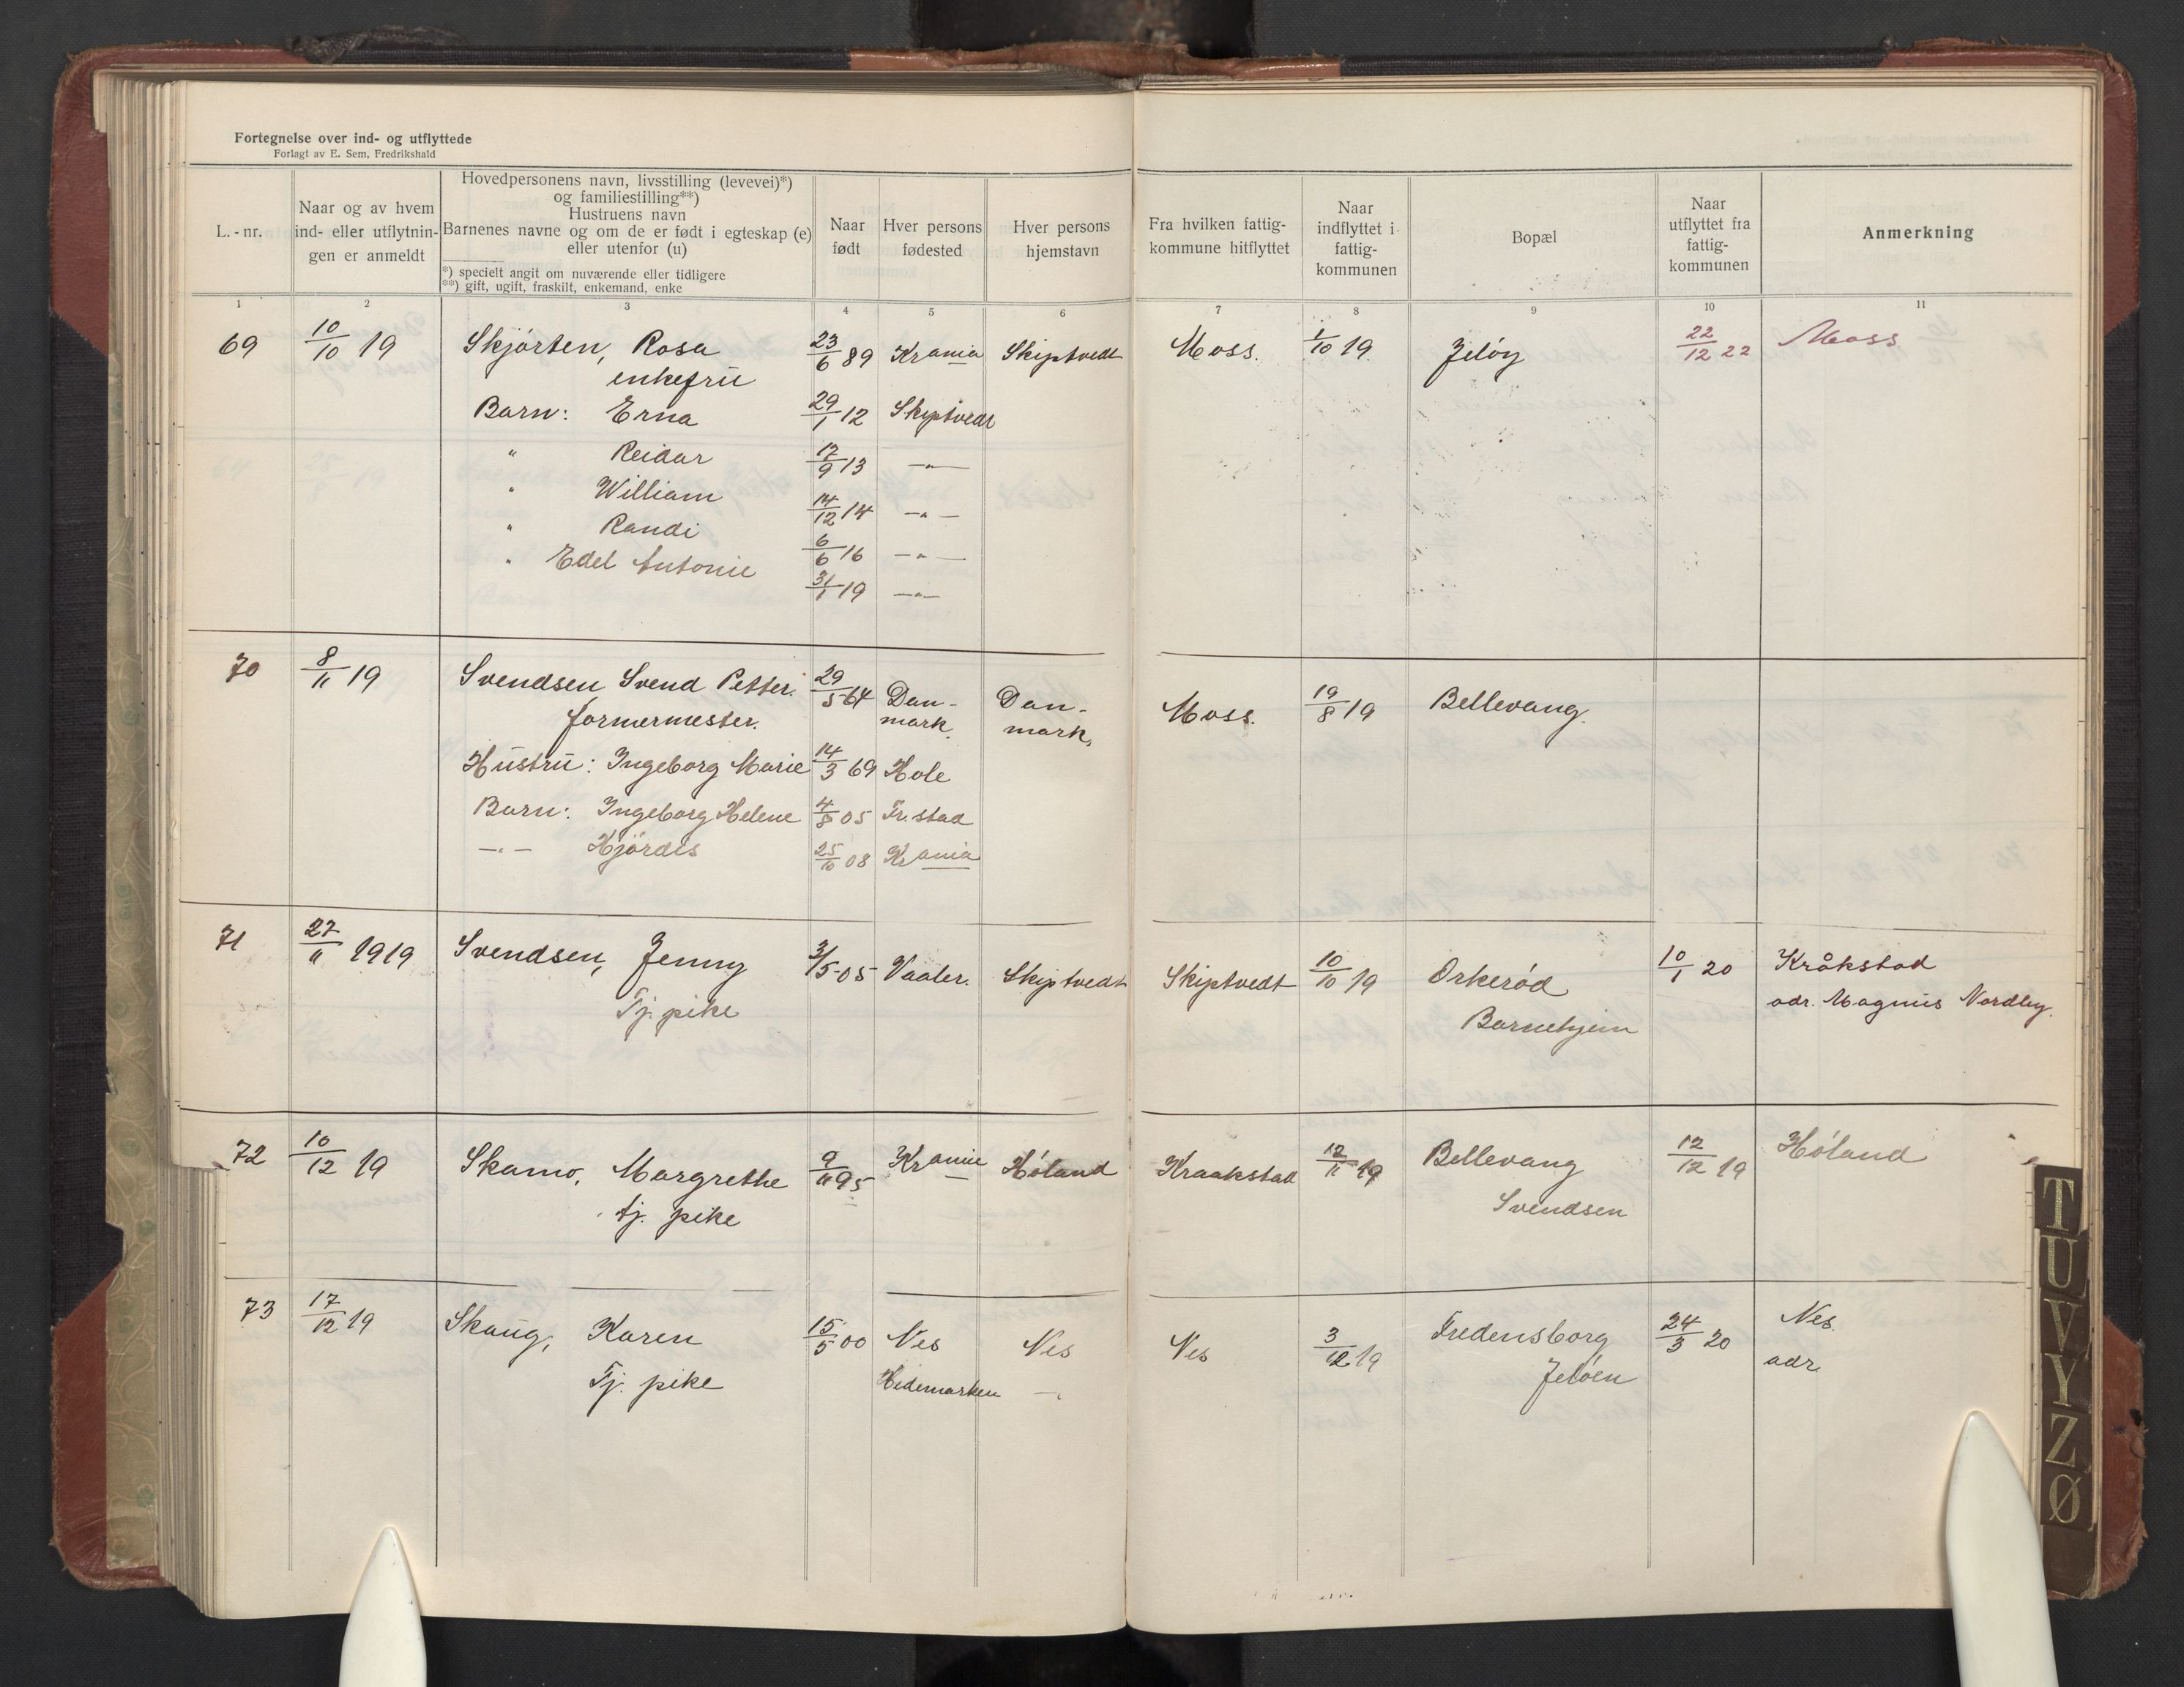 Fortegnelse over ind- og utflyttede
Forlagt av E. Sem, Fredrikshald
L.-nr.
Naar og av hvem
ind- eller utflytnin-
gen er anmeldt
Hovedpersonens navn, livsstilling (levevei)*)
og familiestilling**)
Hustruens navn
Barnenes navne og om de er født i egteskap (e)
eller utenfor (u)
*) specielt angit om nuværende eller tidligere
**) gift, ugift, fraskilt, enkemand, enke
Naar
født
Hver persons
fødested
Hver persons
hjemstavn
Fra hvilken fattig-
kommune hitflyttet
Naar
indflyttet i
fattig-
kommunen
Bopæl
Naar
utflyttet fra
fattig-
kommunen
Anmerkning
1 2 3 4 5 6 7 8 9 10 11
69 10/10 19 Skjørten, Rosa 23/6 89 Krania Skiptvedt Moss. 1/10 19 Jeløy 22/12 22 Moss
enkefru
Barn: Erna 29/1 12 Skiptvedt
" Reidar 17/9 13 —"—
" William 14/12 14 —"—
" Randi 6/6 16 —"—
" Edel Antonie 31/1 19 —"—
70 8/11 19 Svendsen Svend Petter. 29/5 64 Dan- Dan- Moss. 19/8 19 Bellevang.
formermester. mark. mark.
Hustru: Ingeborg Marie 14/3 69 Hole
Barn: Ingeborg Helene 4/8 05 Fr.stad
—"— Hjørdis 25/10 08 Krania
71 27/11 1919 Svendsen, Jenny 3/5-05 Vaaler. Skiptvedt Skiptvedt 10/10 19 Orkerød 10/1 20 Kråkstad
Tj. pike Barnehjem adr. Magnus Nordby.
72 10/12 19 Skamo, Margrethe 9/11 95 Krania Høland Kraakstad 12/11 19 Bellevang 12/12 19 Høland
tj. pike Svendsen
73 17/12 19 Skaug, Karen 15/5 00 Nes Nes Nes 3/12 19 Fredensborg 24/3 20 Nes.
Tj. pike Hedemarken —"— Jeløen adr.
T
U
V
Y
Z
Ø